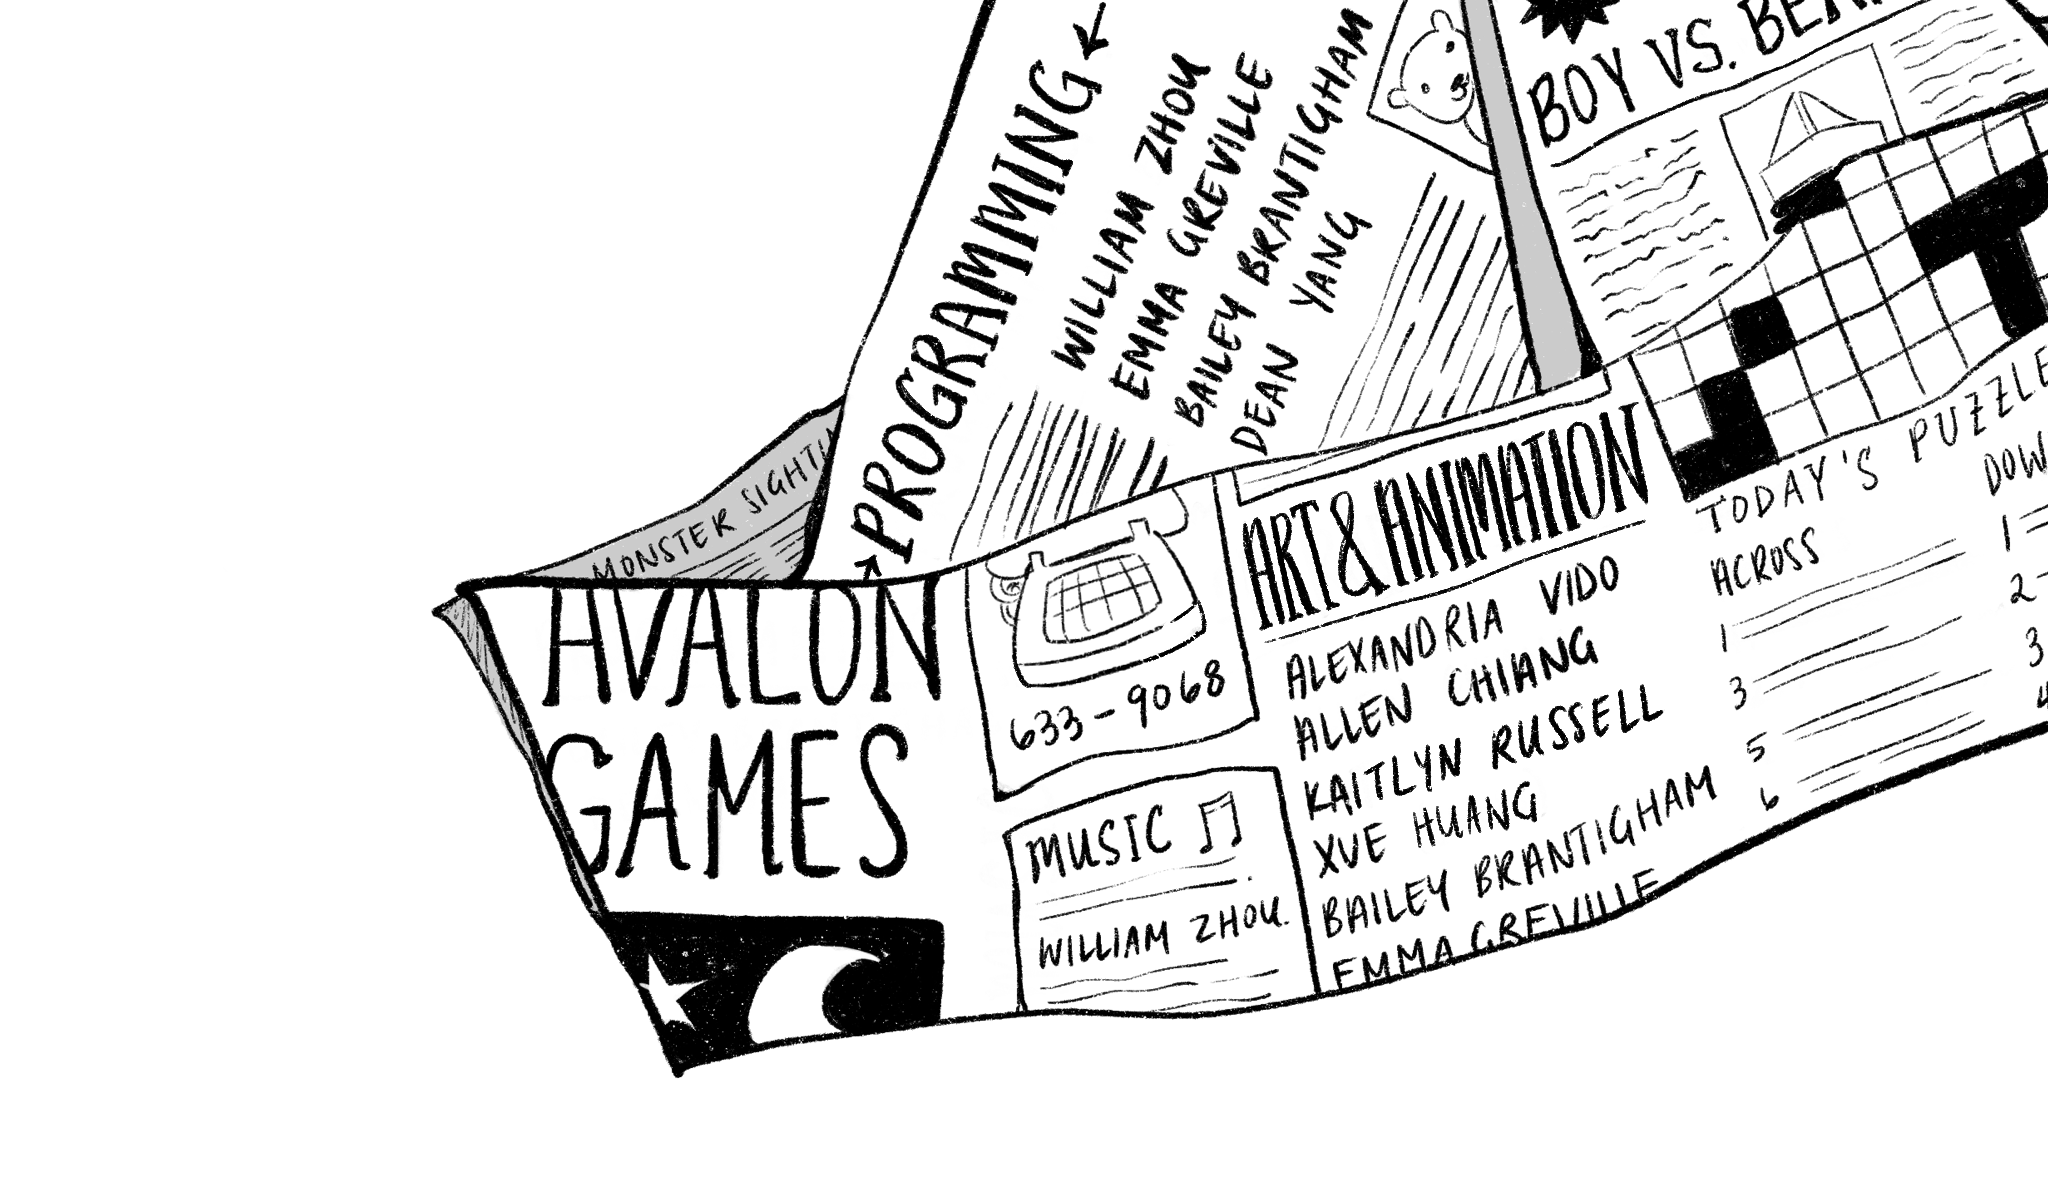 BOY VS. BEAR
PROGRAMMING
WILLIAM ZHOU
EMMA GREVILLE
BAILEY BRANTIGHAM
DEAN YANG
MONSTER SIGHTI
AVALON
GAMES
633-9068
MUSIC
WILLIAM ZHOU
ART & ANIMATION
ALEXANDRIA VIDO
ALLEN CHIANG
KAITLYN RUSSELL
XUE HUANG
BAILEY BRANTIGHAM
EMMA GREVILLE
TODAY'S PUZZLE
ACROSS
1
3
5
6
DOW
1
2
3
4